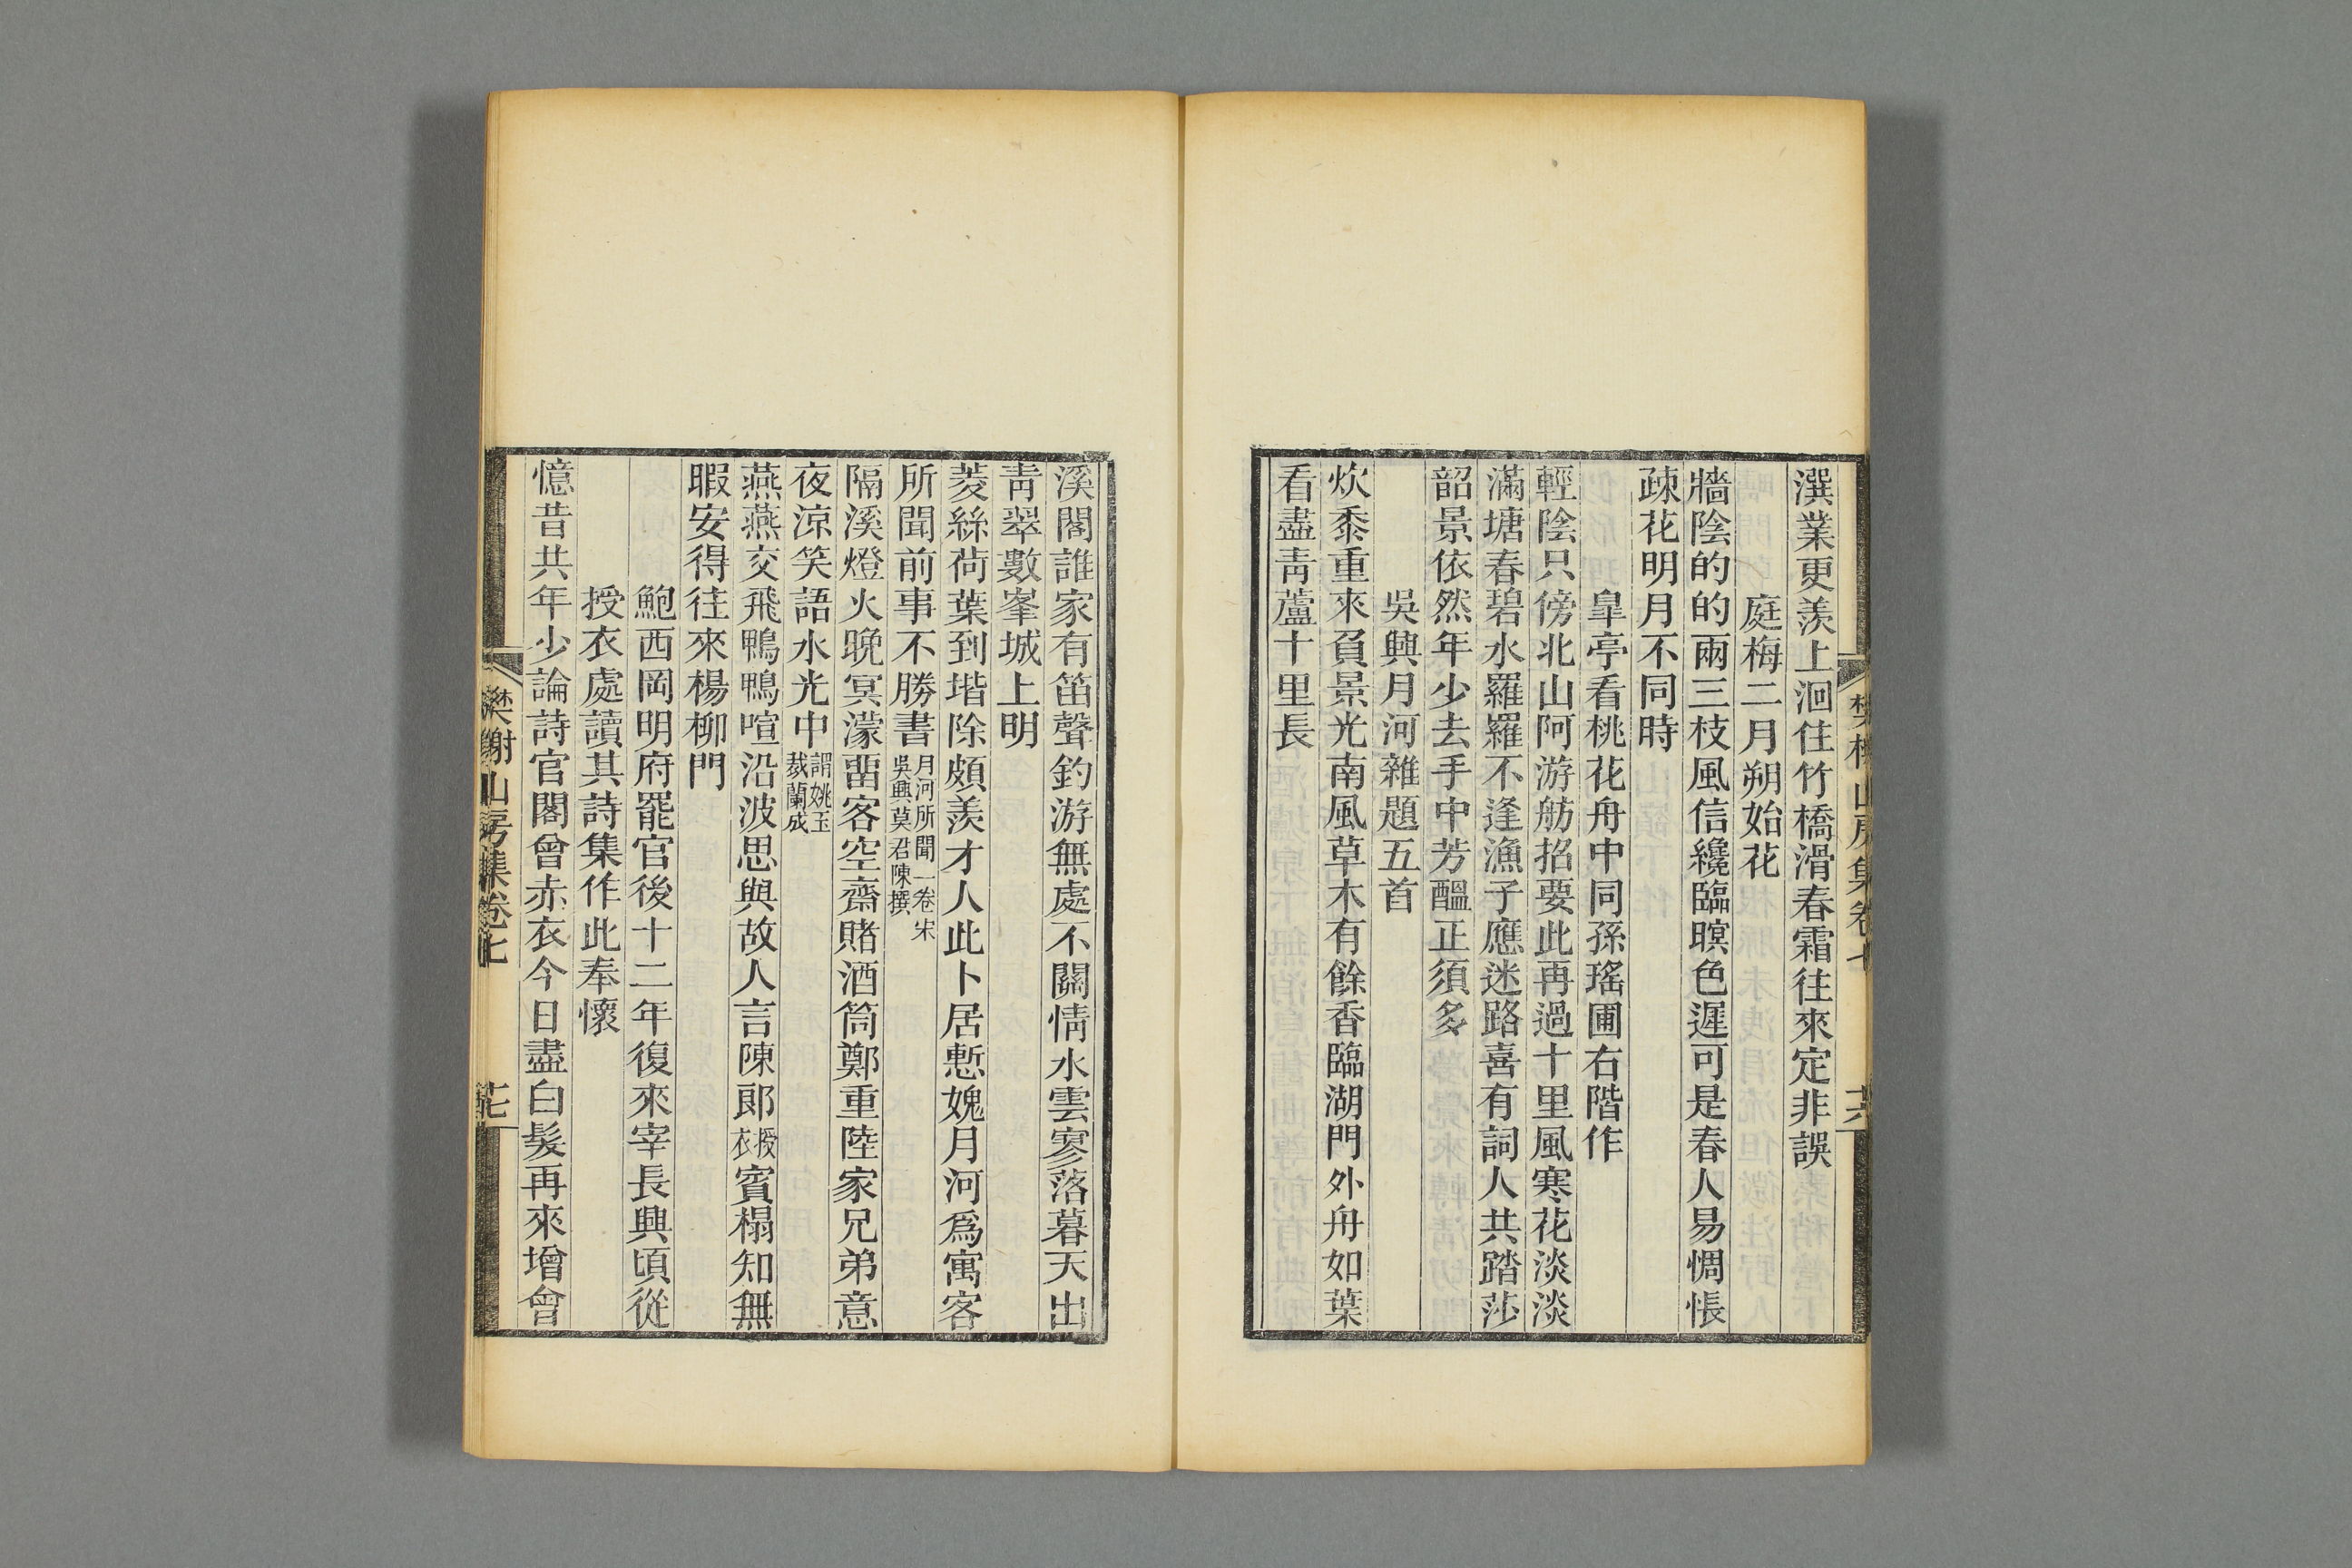 潩業更羨上洄住竹橋滑春霜往來定非誤
庭梅二月朔始花
牆陰的的兩三枝風信纔臨暝色遲可是春人易惆悵
疎花明月不同時
皐亭看桃花舟中同孫瑤圃右階作
輕陰只傍北山阿游舫招要此再過十里風寒花淡淡
滿塘春碧水羅羅不逢漁子應迷路喜有詞人共踏莎
韶景依然年少去手中芳醞正須多
吳興月河雜題五首
炊黍重來負景光南風草木有餘香臨湖門外舟如葉
看盡靑蘆十里長
溪閣誰家有笛聲釣游無處不關情水雲寥落暮天出
靑翠數峯城上明
菱絲荷葉到堦除頗羨才人此卜居慙媿月河爲寓客
所聞前事不勝書月河所聞一卷宋吳興莫君陳撰
隔溪燈火晚冥濛畱客空齋賭酒筒鄭重陸家兄弟意
夜涼笑語水光中謂姚玉裁蘭成
燕燕交飛鴨鴨喧沿波思與故人言陳郞授衣賓榻知無
暇安得往來楊柳門
鮑西岡明府罷官後十二年復來宰長興頃從
授衣處讀其詩集作此奉懷
憶昔共年少論詩官閣曾赤衣今日盡白髮再來增會
樊榭山房集卷七